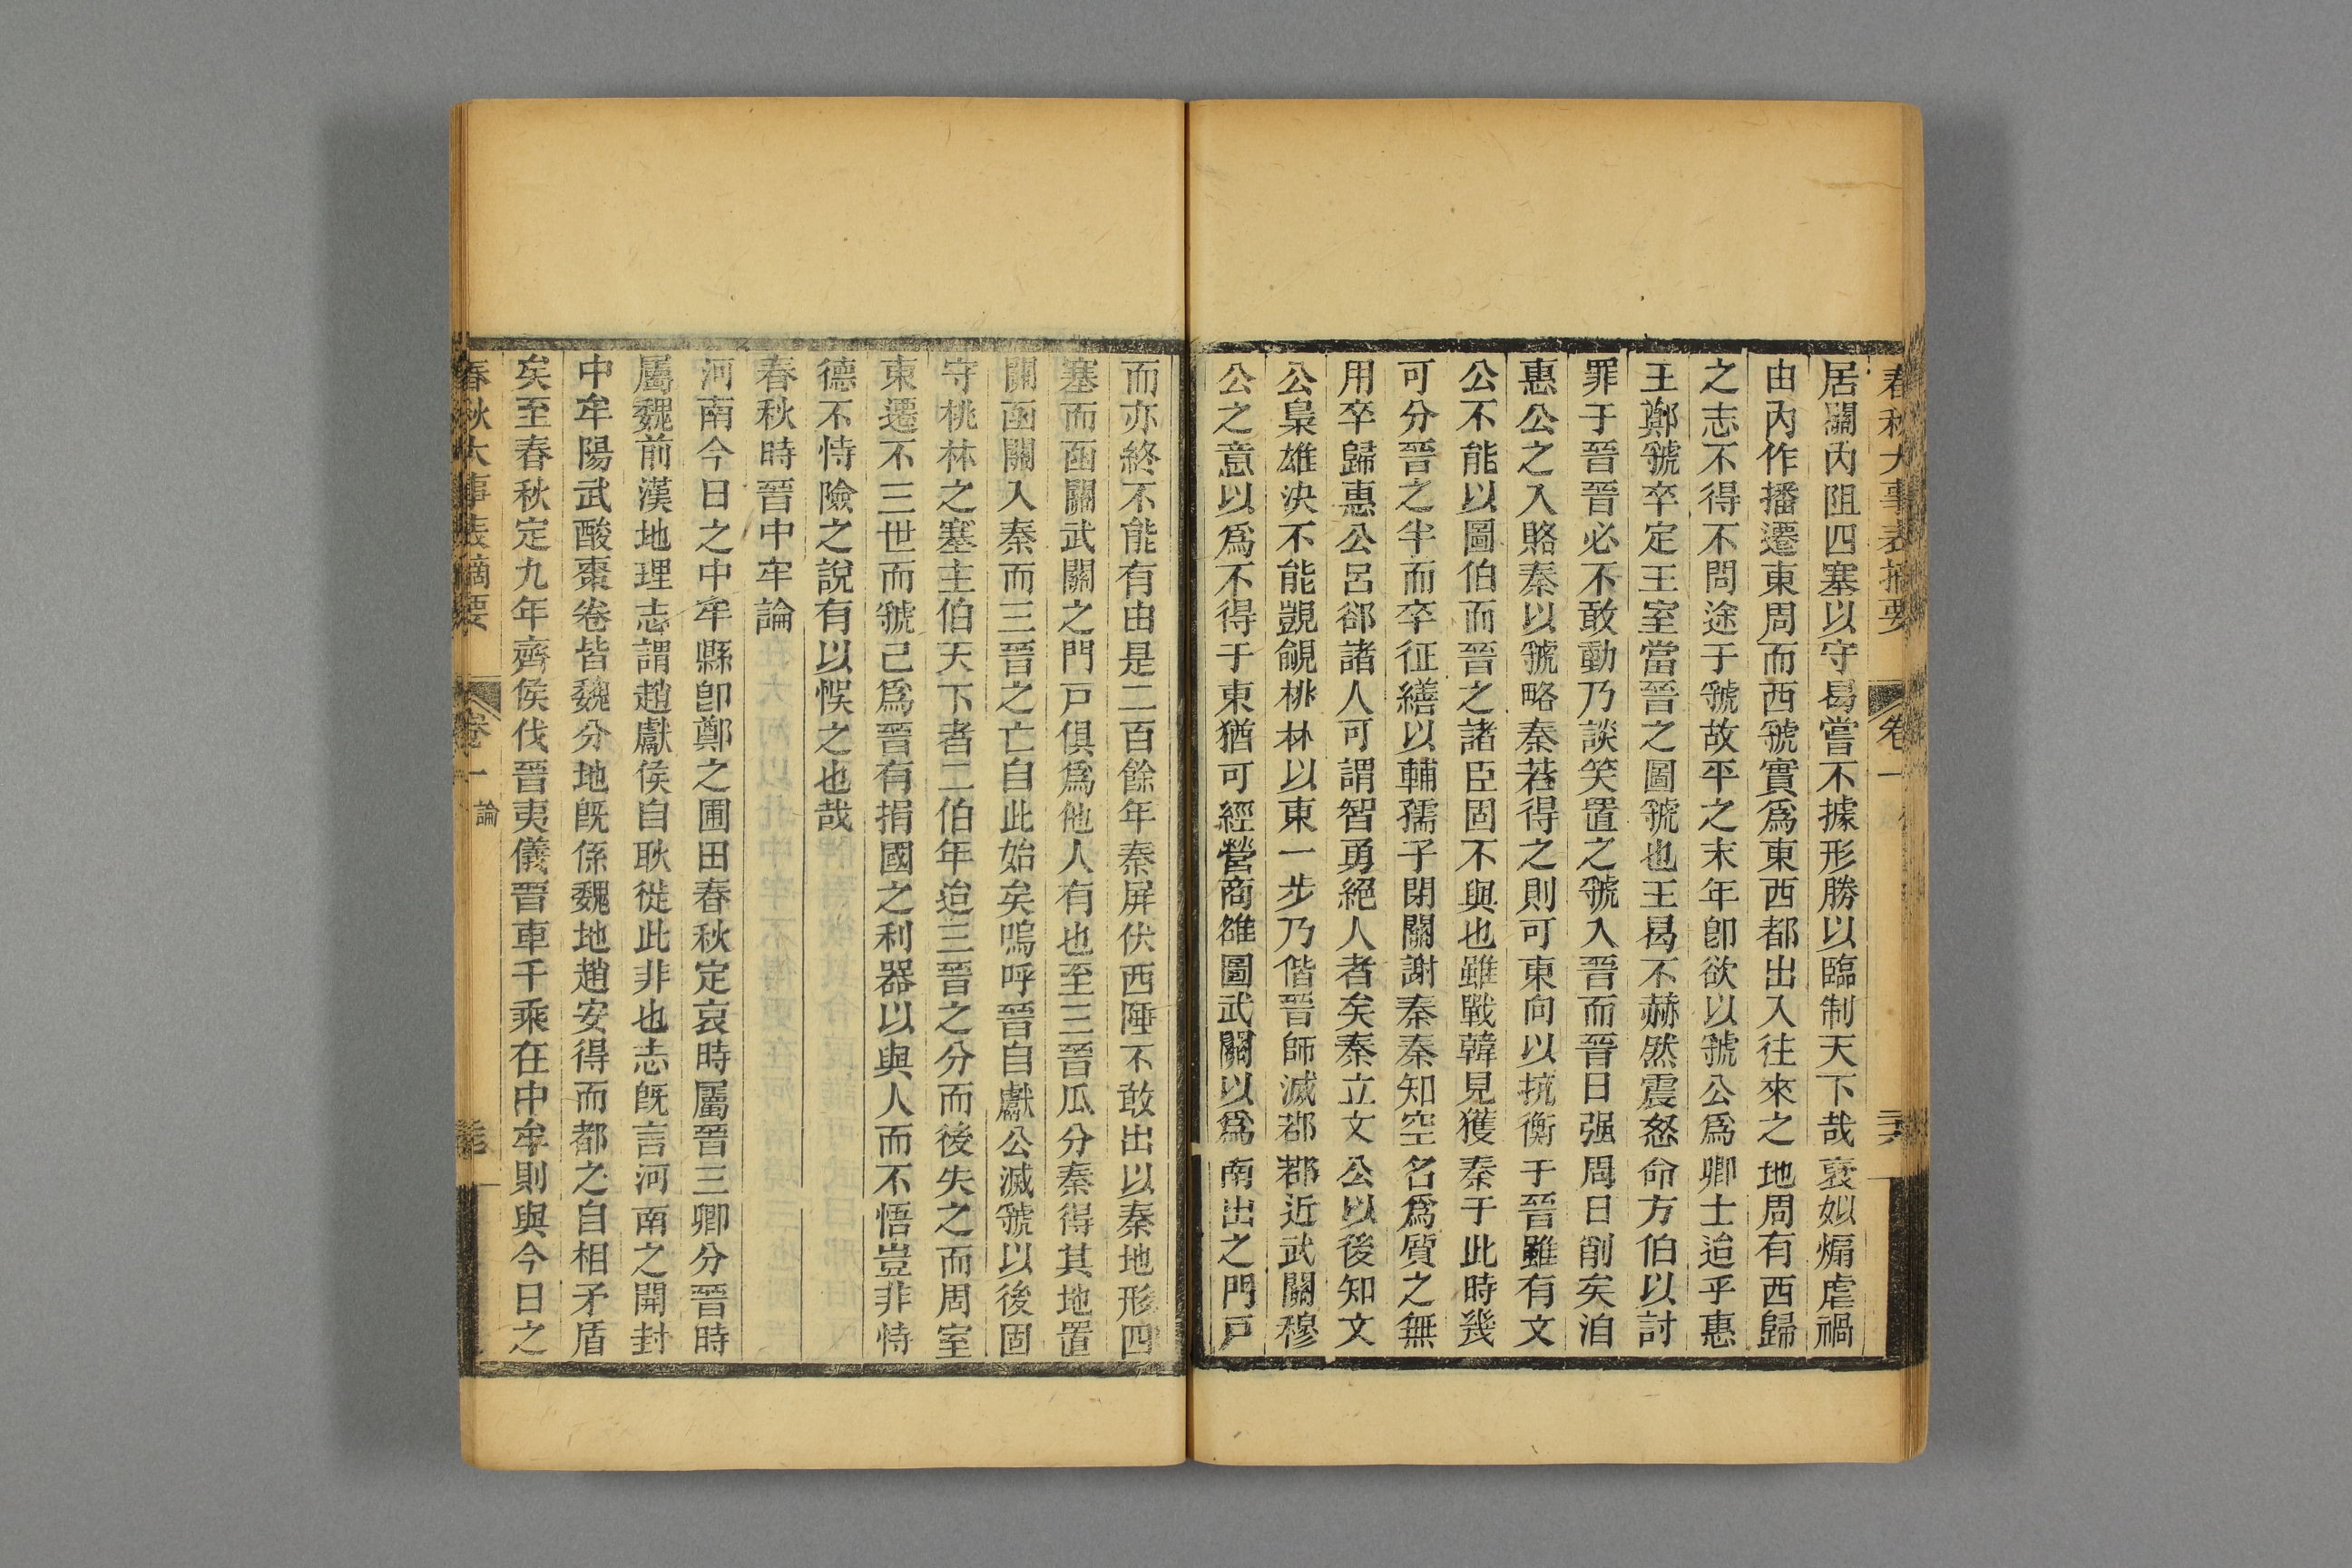 春秋大事表摘要 卷一 三六
居關內阻四塞以守曷嘗不據形勝以臨制天下哉褎姒煽虐禍
由內作播遷東周而西虢實爲東西都出入往來之地周有西歸
之志不得不問途于虢故平之末年卽欲以虢公爲卿士迨乎惠
王鄭虢卒定王室當晉之圖虢也王曷不赫然震怒命方伯以討
罪于晉晉必不敢動乃談笑置之虢入晉而晉日强周日削矣洎
惠公之入賂秦以虢略秦若得之則可東向以抗衡于晉雖有文
公不能以圖伯而晉之諸臣固不與也雖戰韓見獲秦于此時幾
可分晉之半而卒征繕以輔孺子閉關謝秦秦知空名爲質之無
用卒歸惠公呂郤諸人可謂智勇絕人者矣秦立文公以後知文
公梟雄決不能覬覦桃林以東一步乃偕晉師滅鄀鄀近武關穆
公之意以爲不得于東猶可經營商雒圖武關以爲南出之門戸
而亦終不能有由是二百餘年秦屏伏西陲不敢出以秦地形四
塞而函關武關之門戸俱爲他人有也至三晉瓜分秦得其地置
關函關入秦而三晉之亡自此始矣嗚呼晉自獻公滅虢以後固
守桃林之塞主伯天下者二伯年迨三晉之分而後失之而周室
東遷不三世而虢已爲晉有捐國之利器以與人而不悟豈非恃
德不恃險之說有以悞之也哉
春秋時晉中牟論
河南今日之中牟縣卽鄭之圃田春秋定哀時屬晉三卿分晉時
屬魏前漢地理志謂趙獻侯自耿徙此非也志旣言河南之開封
中牟陽武酸棗卷皆魏分地旣係魏地趙安得而都之自相矛盾
矣至春秋定九年齊侯伐晉夷儀晉車千乘在中牟則與今日之
春秋大事表摘要 卷一 論